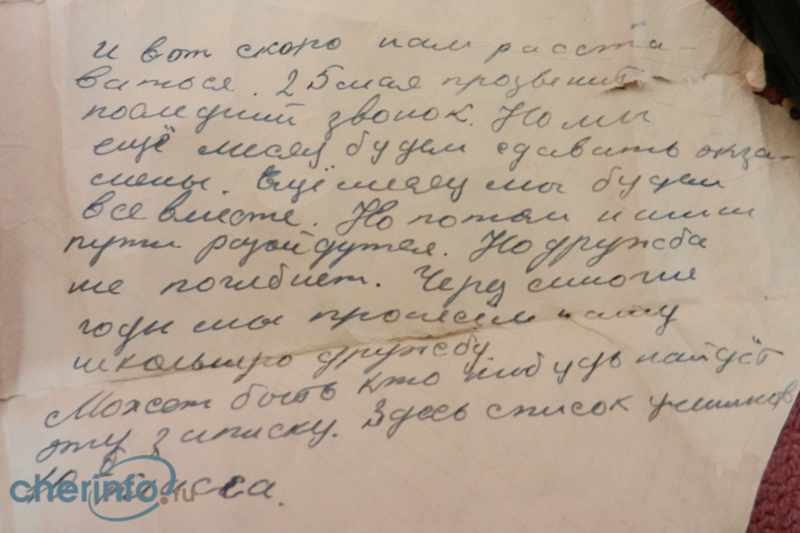 и вот скоро нам расста-
ваться. 25 мая прозвенит
последний звонок. Но мы
ещё месяц будем сдавать экза-
мены. Ещё месяц мы будем
все вместе. Но потом наши
пути разойдутся. Но дружба
не погибнет. Через многие
годы мы пронесём нашу
школьную дружбу
Может быть кто нибудь найдёт
эту записку. Здесь список учеников
10 класса.
cherinfo.ru